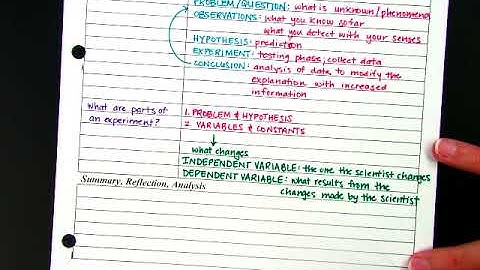 PROBLEM/QUESTION: what is unknown/phenomena
OBSERVATIONS: what you know so far
what you detect with your senses
HYPOTHESIS: prediction
EXPERIMENT: testing phase, collect data
CONCLUSION: analysis of data to modify the
explanation with increased
information
What are parts of
an experiment?
1. PROBLEM & HYPOTHESIS
2. VARIABLES & CONSTANTS
what changes
INDEPENDENT VARIABLE: the one the scientist changes
DEPENDENT VARIABLE: what results from the
changes made by the scientist
Summary, Reflection, Analysis